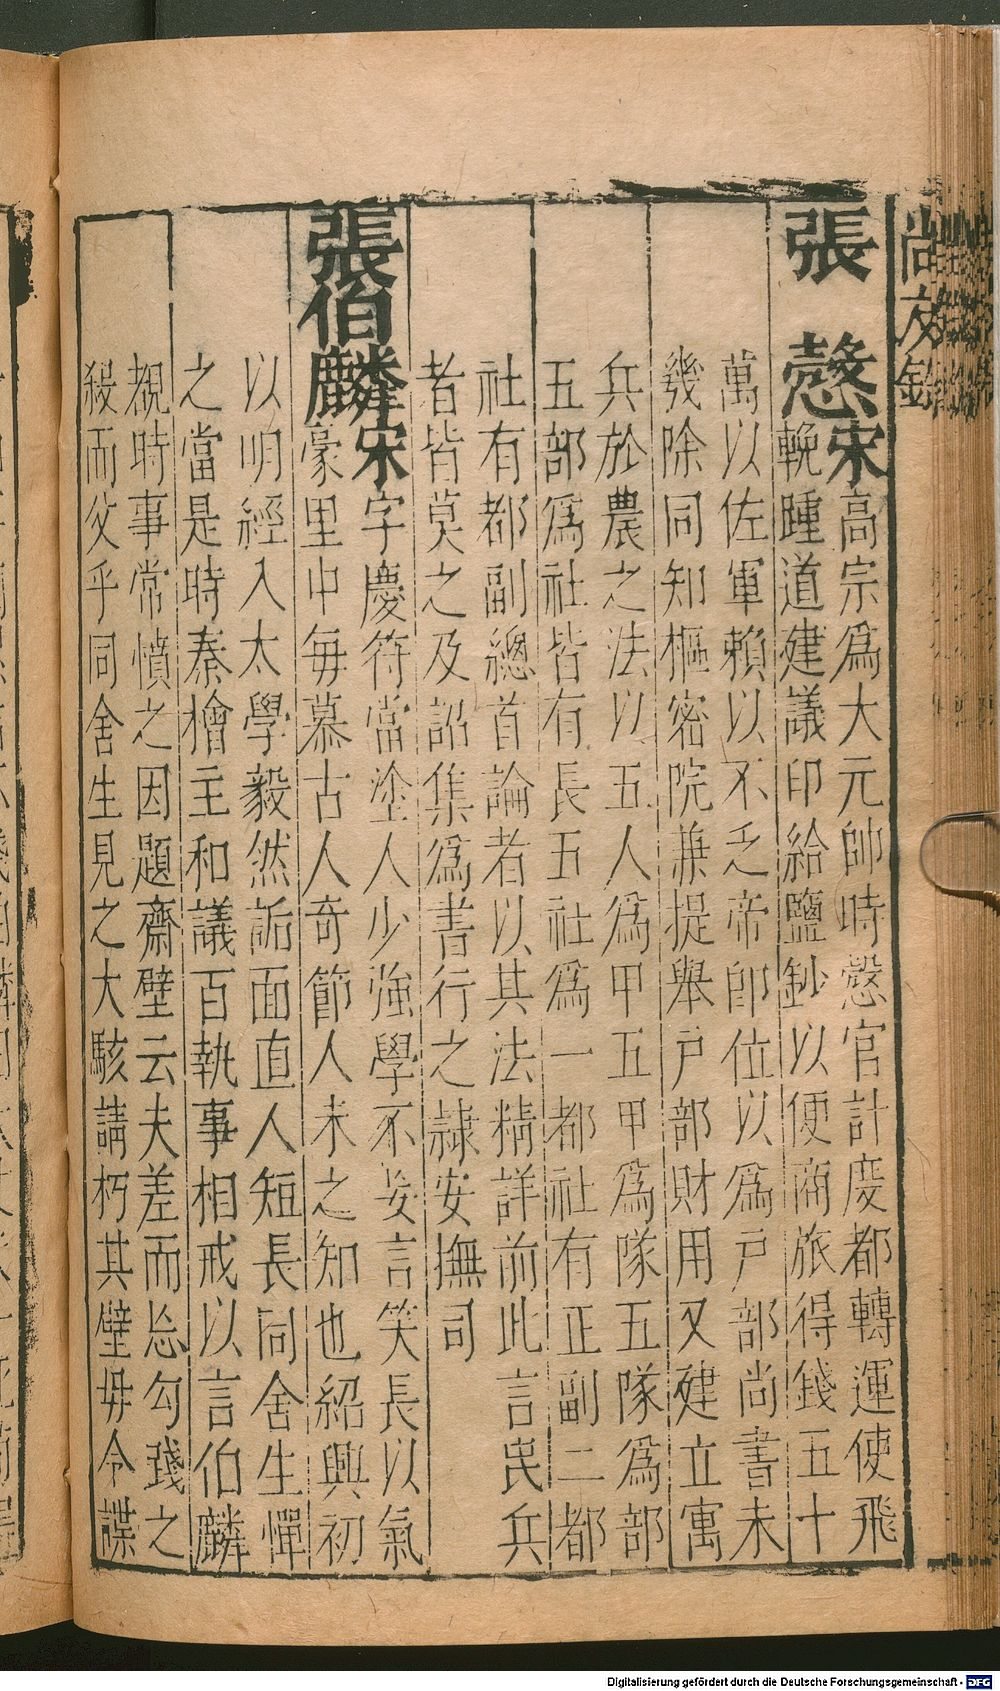 尚友錄
張 愨宋高宗爲大元帥時愨官計度都轉運使飛
輓踵道建議印給鹽鈔以便商旅得錢五十
萬以佐軍賴以不乏帝卽位以爲戶部尚書未
幾除同知樞密院兼提舉戶部財用又建立寓
兵於農之法以五人爲甲五甲爲隊五隊爲部
五部爲社皆有長五社爲一都社有正副二都
社有都副總首論者以其法精詳前此言民兵
者皆莫之及詔集爲書行之隷安撫司
張伯麟宋字慶符當塗人少強學不妄言笑長以氣
豪里中毎慕古人奇節人未之知也紹興初
以明經入太學毅然詬面直人短長同舍生憚
之當是時秦檜主和議百執事相戒以言伯麟
覩時事常憤之因題齋壁云夫差而忘勾踐之
殺而父乎同舍生見之大駭請朽其壁毋令諜
Digitalisierung gefördert durch die Deutsche Forschungsgemeinschaft - DFG